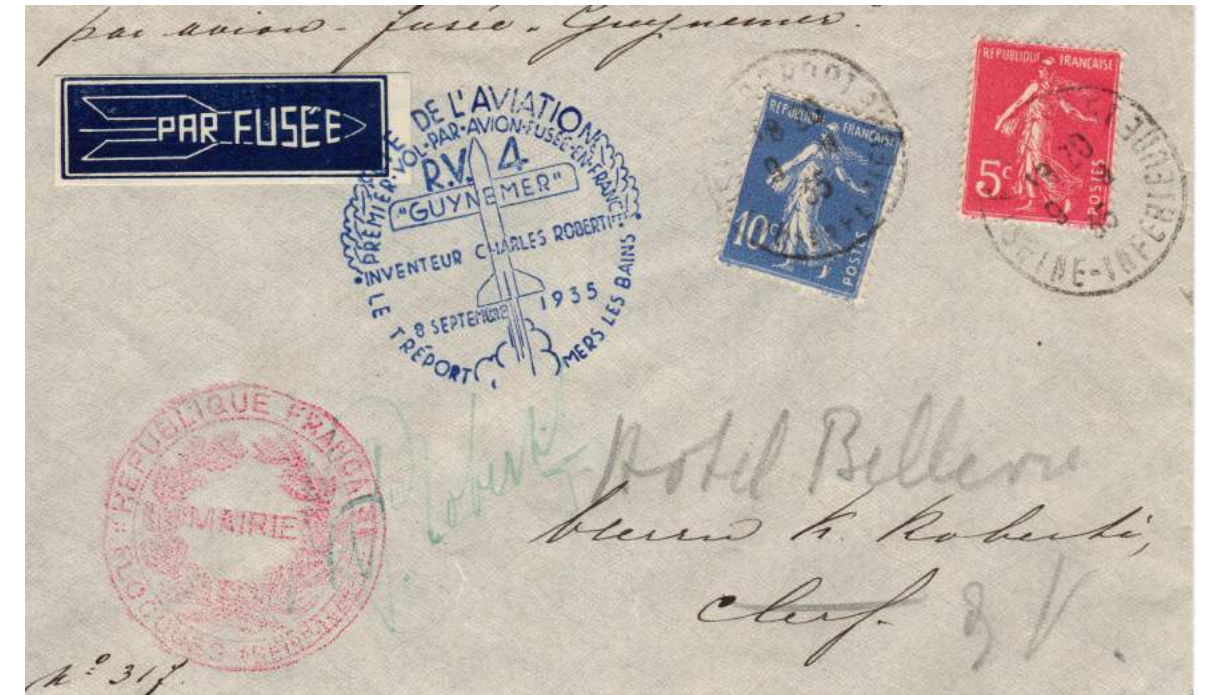 par avion - fusée - "Guynemer."
PAR FUSÉE
DE L'AVIATION
PREMIER·VOL·PAR·AVION·FUSÉE·EN·FRANCE
R.V. 4
"GUYNEMER"
INVENTEUR CHARLES ROBERTI
8 SEPTEMBRE 1935
LE TRÉPORT MERS LES BAINS
REPUBLIQUE FRANÇAISE
10c
POSTES
REPUBLIQUE FRANÇAISE
5c
POSTES
SEINE-INFERIEURE
REPUBLIQUE FRANÇAISE
MAIRIE
Roberti
Hotel Bellevue
Herrn K. Roberti,
Clerf.
No 317.